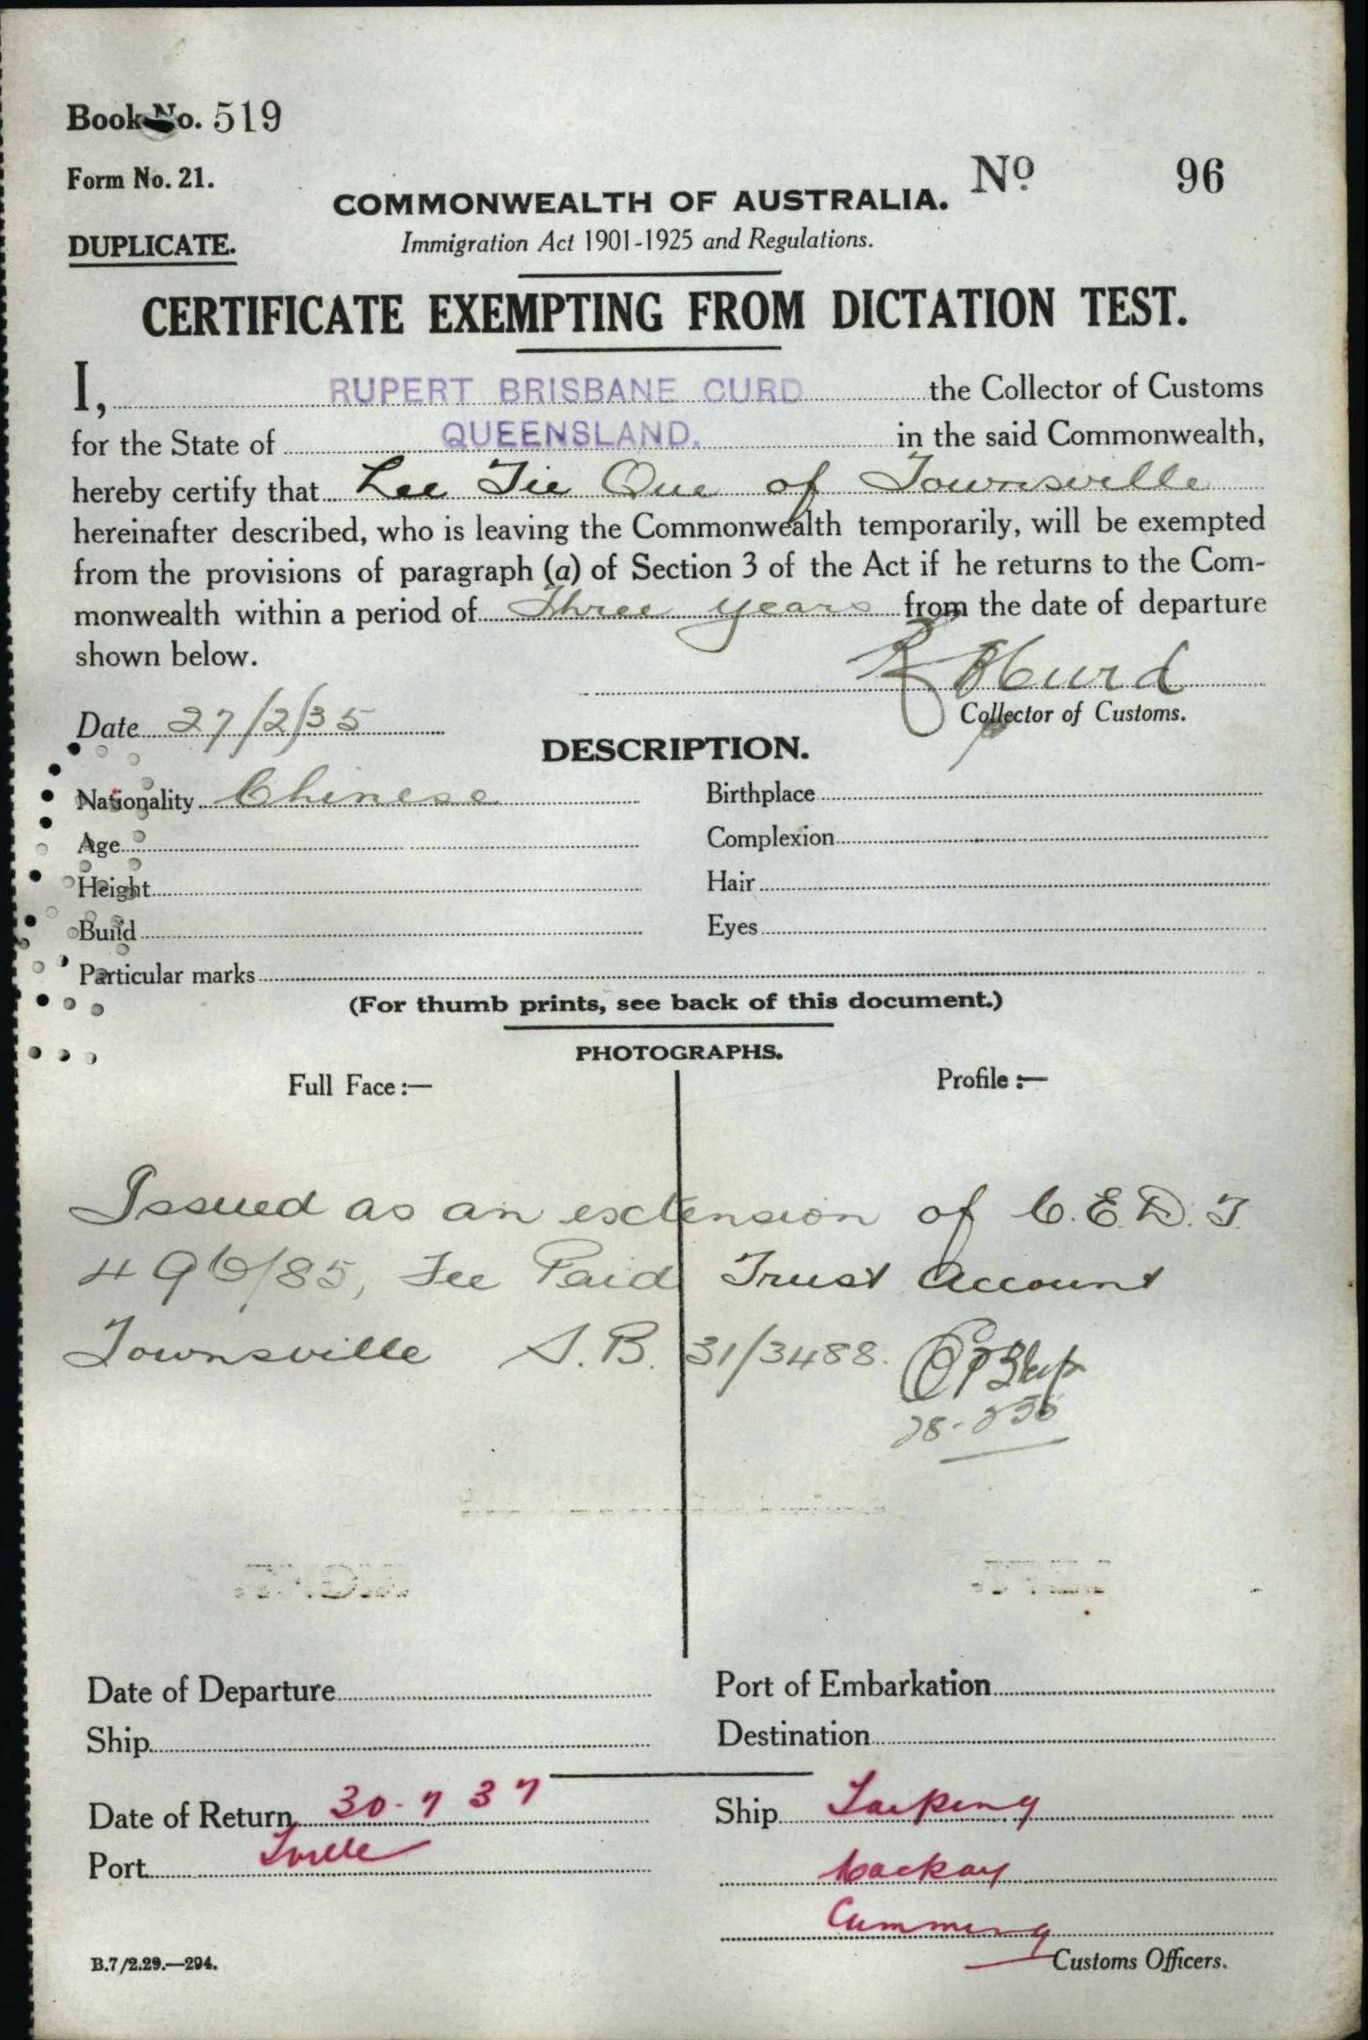 Book No. 519
Form No. 21.
No 96
COMMONWEALTH OF AUSTRALIA.
DUPLICATE.
Immigration Act 1901-1925 and Regulations.
CERTIFICATE EXEMPTING FROM DICTATION TEST.
I, RUPERT BRISBANE CURD the Collector of Customs
for the State of QUEENSLAND. in the said Commonwealth,
hereby certify that Lee Tie Que of Townsville
hereinafter described, who is leaving the Commonwealth temporarily, will be exempted
from the provisions of paragraph (a) of Section 3 of the Act if he returns to the Com-
monwealth within a period of Three years from the date of departure
shown below.
R B Curd
Date 27/2/35
Collector of Customs.
DESCRIPTION.
Nationality Chinese
Birthplace
Age
Complexion
Height
Hair
Build
Eyes
Particular marks
(For thumb prints, see back of this document.)
PHOTOGRAPHS.
Full Face :—
Profile :—
Issued as an extension of C.E.D.T.
496/85, Fee Paid Trust Account
Townsville S.B. 31/3488.
Date of Departure
Port of Embarkation
Ship
Destination
Date of Return 30-7 37
Ship Taiping
Port Tville
Mackay
Cumming
B.7/2.29.—294.
Customs Officers.